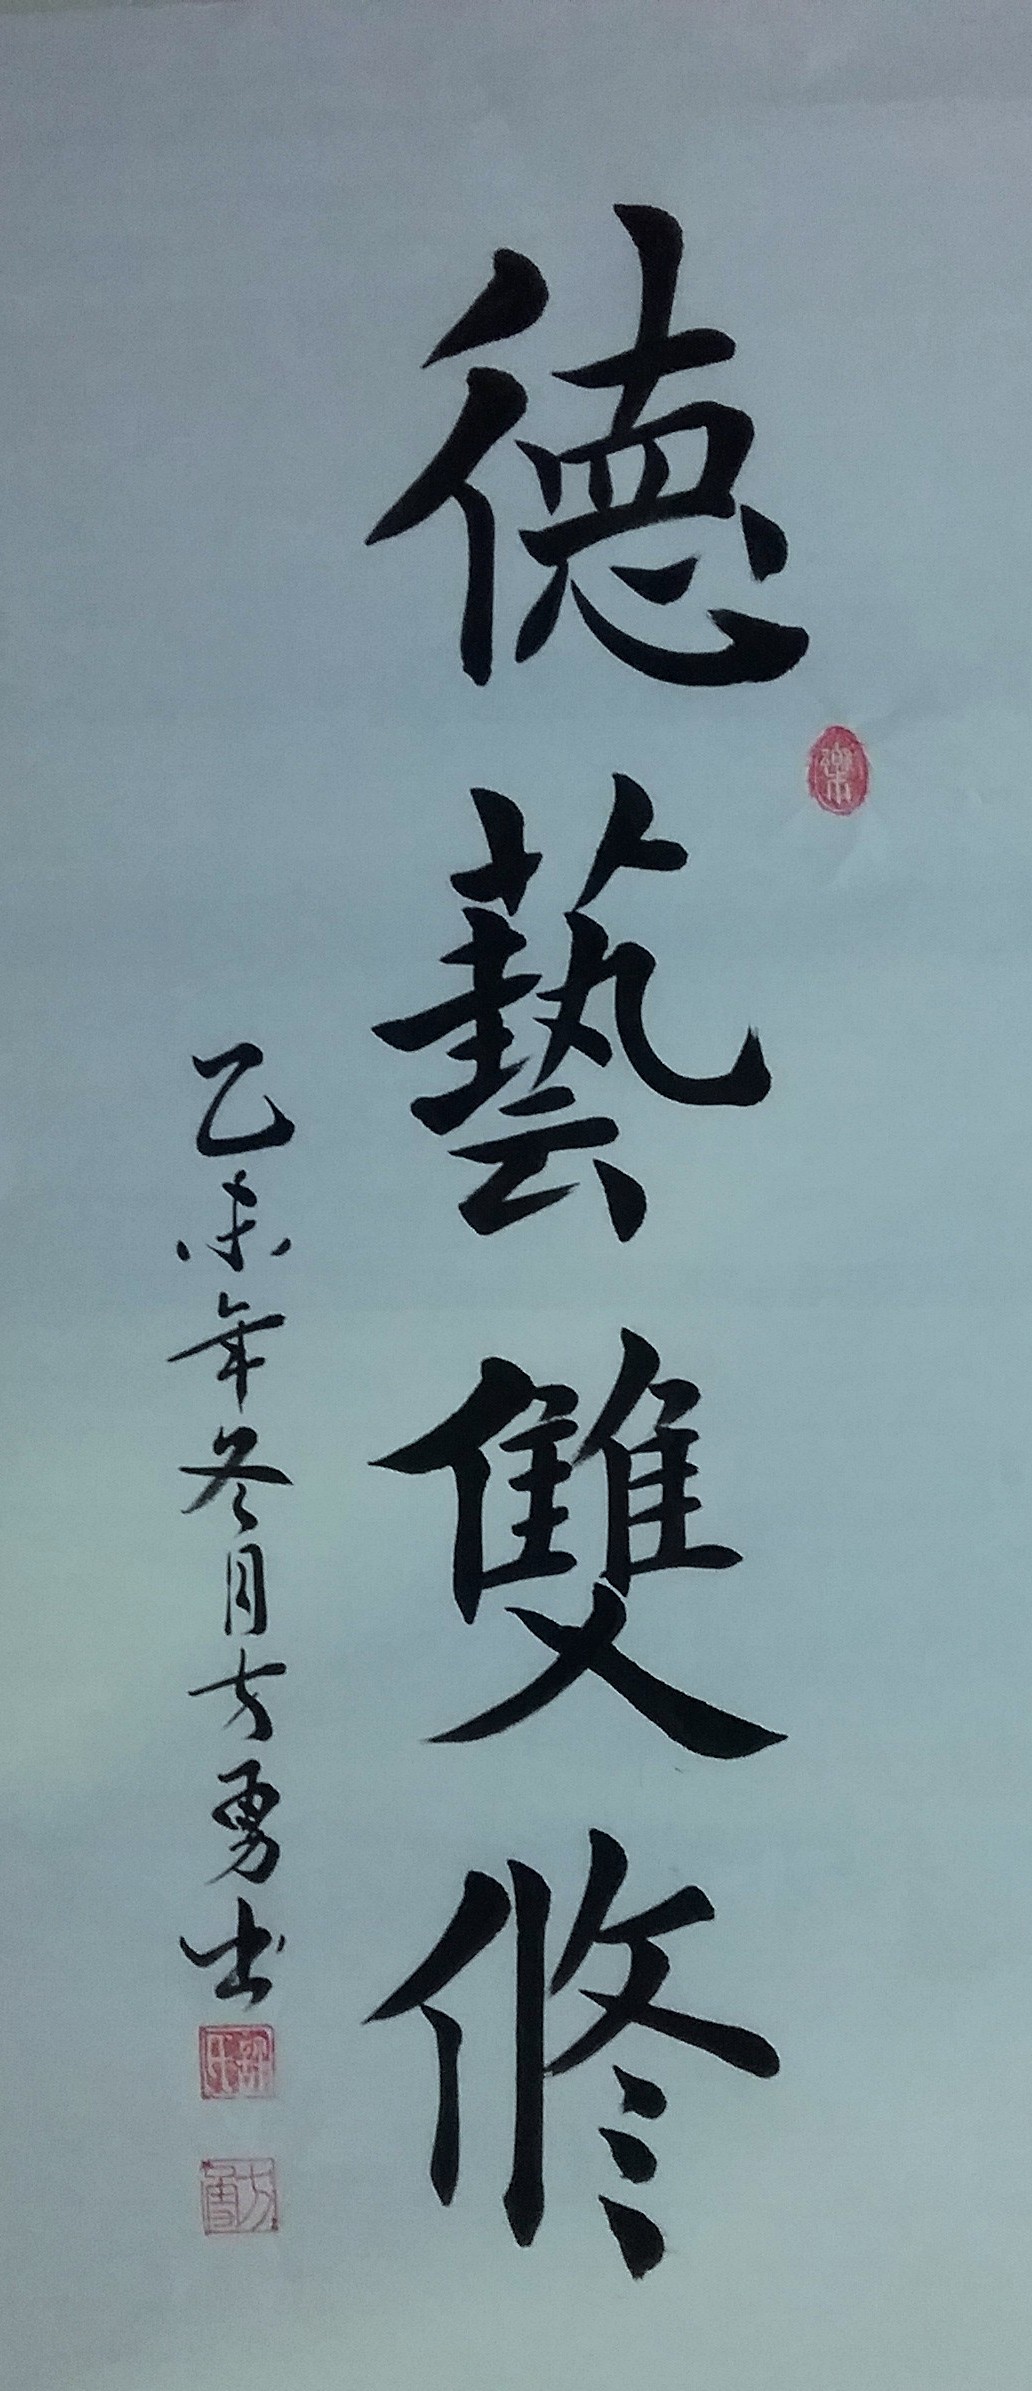 德藝雙修
乙未年冬月方勇书
樂
方勇